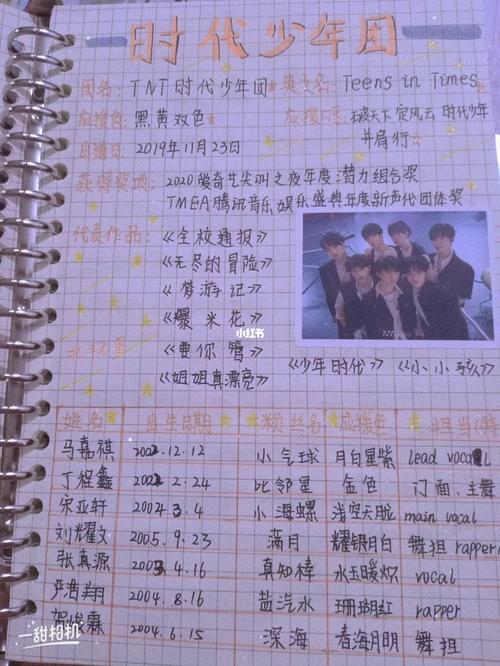 时代少年团
团名: TNT时代少年团 英文名: Teens in Times
应援色: 黑黄双色 应援口号: 破天下 定风云 时代少年
并肩行
出道日: 2019年11月23日
获得奖项: 2020爱奇艺尖叫之夜年度潜力组合奖
TMEA腾讯音乐娱乐盛典年度新声代团体奖
代表作品: 《全校通报》
《无尽的冒险》
《梦游记》
《爆米花》
小红书
北斗七星
《要你管》
《姐姐真漂亮》 《少年时代》 《小小孩》
姓名 出生日期 粉丝名 应援色 担当
马嘉祺 2002.12.12 小气球 月白星紫 Lead vocal
丁程鑫 2002.2.24 比邻星 金色 门面、主舞
宋亚轩 2004.3.4 小海螺 浅空天蓝 main vocal
刘耀文 2005.9.23 满月 耀银月白 舞担 rapper
张真源 2003.4.16 真知棒 水玉暖炽 vocal
严浩翔 2004.8.16 盐汽水 珊瑚红 rapper
贺峻霖 2004.6.15 深海 春海月明 舞担
一甜相机